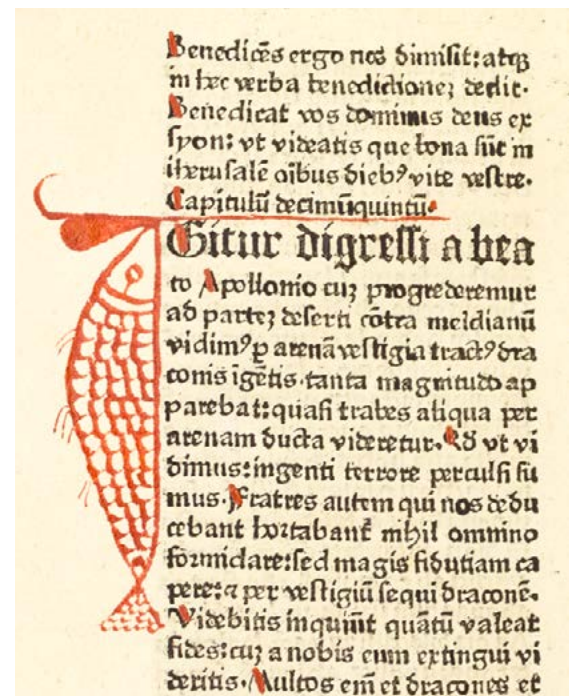 Benedicēs ergo nos dimisit: atqꝫ
in hec verba benedictioneꝫ dedit.
Benedicat vos dominus deus ex
syon: vt videatis que bona sūt in
iherusalē oībus diebꝰ vite vestre.
Capitulū decimūquintū.
Gitur digressi a bea
to Apollonio cuꝫ progrederemur
ad parteꝫ deserti cōtra meridianū
vidimꝰ ꝑ arenā vestigia tractꝰ dra
conis īgētis. tanta magnitudo ap
parebat: quasi trabes aliqua per
arenam ducta videretur. Qd vt vi
dimus: ingenti terrore perculsi su
mus. Fratres autem qui nos dedu
cebant hortabant̄ nihil omnino
formidare: sed magis fidutiam ca
pere: ⁊ per vestigiū sequi draconē.
Videbitis inquiūt quātū valeat
fides: cuꝫ a nobis eum extingui vi
deritis. Multos em̄ et dracones et